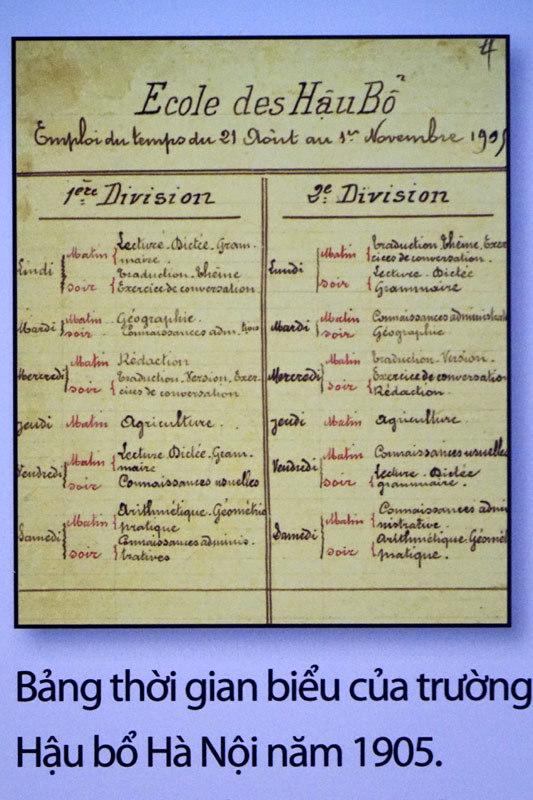 4
Ecole des Hâu Bổ
Emploi du temps du 21 Août au 1er Novembre 1905
1ère Division
Lundi
Matin
Lecture. Dictée. Gram-
maire.
Soir
Traduction. Thême
Exercice de conversation
Mardi
Matin
Géographie.
Soir
Connaissances adm. tives
Mercredi
Matin
Rédaction
Soir
Traduction. Version. Exer-
cices de conversation
Jeudi
Matin
Agriculture.
Vendredi
Matin
Lecture. Dictée. Gram-
maire
Soir
Connaissances usuelles
Samedi
Matin
Arithmétique. Géométrie
pratique
Soir
Connaissances adminis-
tratives
2e Division
Lundi
Matin
Traduction. Thême. Exer
cices de conversation.
Soir
Lecture. Dictée
Grammaire
Mardi
Matin
Connaissances administrat
Soir
Géographie
Mercredi
Matin
Traduction. Version.
Soir
Exercice de conversation
Rédaction.
Jeudi
Matin
Agriculture.
Vendredi
Matin
Connaissances usuelles
Soir
Lecture. Dictée
grammaire.
Samedi
Matin
Connaissances admi
nistrative.
Soir
Arithmétique. Géomét
pratique.
Bảng thời gian biểu của trường
Hậu bổ Hà Nội năm 1905.